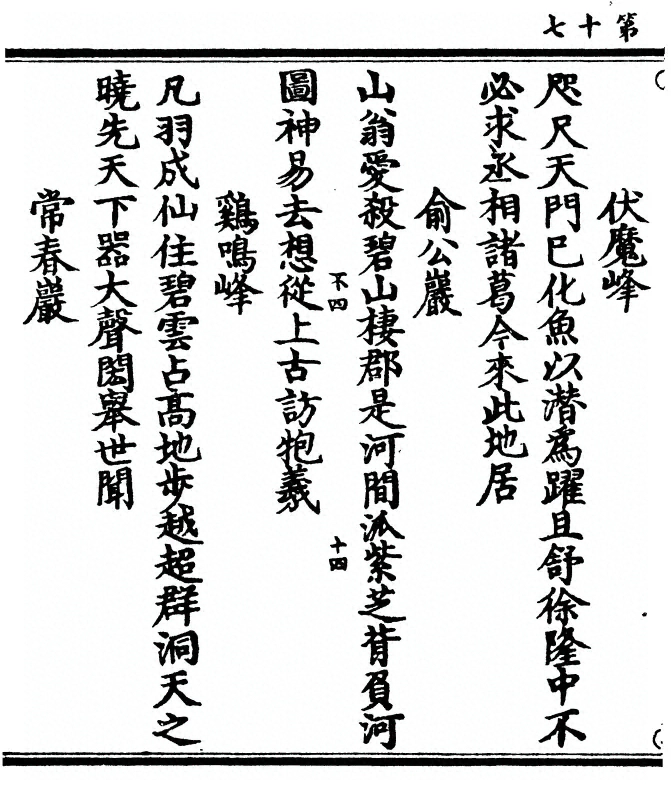 第十七
伏魔峰
咫尺天門巳化魚以潛爲躍且舒徐隆中不
必求丞相諸葛今來此地居
俞公巖
山翁愛殺碧山棲郡是河間派紫芝背負河
圖神易去想從上古訪羲
不四
十四
鷄鳴峰
凡羽成仙住碧雲占高地步越超群洞天之
曉先天下噐大聲閧舉世聞
常春巖